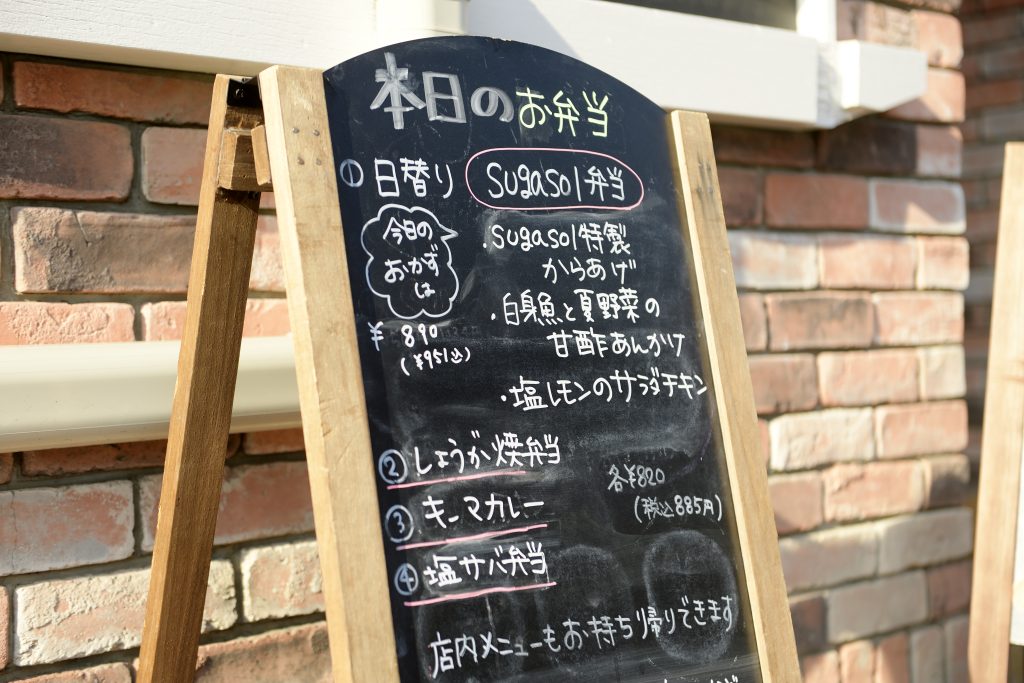 本日のお弁当
① 日替り sugasol弁当
今日の
おかず
は
¥890
(¥951込)
・sugasol特製
からあげ
・白身魚と夏野菜の
甘酢あんかけ
・塩レモンのサラダチキン
② しょうが焼弁当
③ キーマカレー
④ 塩サバ弁当
各¥820
(税込885円)
店内メニューもお持ち帰りできます